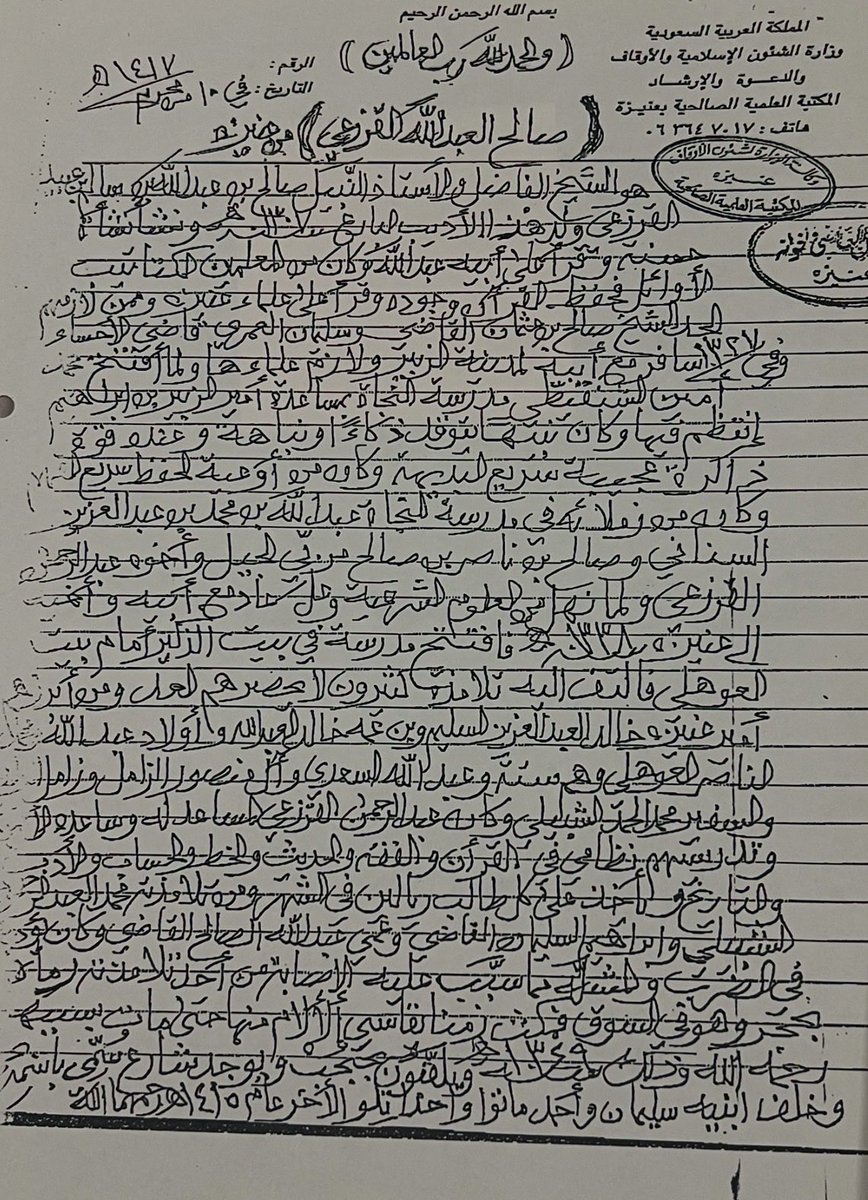 بسم الله الرحمن الرحيم
المملكة العربية السعودية
وزارة الشئون الإسلامية والأوقاف
والدعوة والإرشاد
المكتبة العلمية الصالحية بعنيزة
هاتف : ٠٦ ٣٦٤٧٠١٧
(والحمد لله رب العالمين)
الرقم :
التاريخ : في ١٠ من محرم ١٤١٧ هـ
(صالح العبدالله القرزعي) من عنيزه
هو الشيخ الفاضل والأستاذ النبيل صالح بن عبدالله بن
القرزعي ولد هذا الأديب البارع ونشأ نشأة
حسنة وقرأ على أبيه عبدالله وكان من المعلمين الكتاتيب
الأوائل فحفظ القرآن وجوده وقرأ على علماء عنيزه وممن لازمهم
الجد الشيخ صالح بن عثمان القاضي وسليمان العمري قاضي الأحساء
وفي ١٣٢٧ سافر مع أبيه لمدينة الزبير ولازم علماءها ولما افتتح محمد
أمين الشنقيطي مدرسة النجاة بمساعدة أمير الزبير بن ابراهيم
إنتظم فيها وكان نبيها يتوقد ذكاءً ونباهة وعنده قوة
ذاكرة عجيبة سريع البديهة وكان من أوعية الحفظ سريع
وكان من زملائه في مدرسة النجاة عبدالله بن محمد بن عبدالعزيز
السناني وصالح بن ناصر بن صالح مربي الجيل وأخوه عبدالرحمن
القرزعي ولما نهل من العلوم الشرعية عاد مع أبيه
إلى عنيزه فافتتح مدرسة في بيت الذكير أمام بيت
العوهلي فالتف اليه تلامذة كثيرون لا يحصرهم العد ومن أبرزهم
أمير عنيزه خالد العبدالعزيز السليم وبن عمه خالد العبدالله وأولاد عبدالله
الناصر العوهلي وهم ستة وعبدالله السعدي ومنصور الزامل وزامل
ويوسف بن محمد الحمد الشبيلي وكان عبدالرحمن القرزعي مساعد له
وتدريسهم نظامي في القرآن والفقه والحديث والخط والحساب والأدب
والتاريخ ويأخذ على كل طالب ريالين في الشهر ومن تلامذته محمد
الشبيلي وابراهيم السليمان القاضي وعمي عبدالله الصالح القاضي وكان
في الضرب والمشقة مما سبب عليه الإصابة من أحد تلامذته رماه
بحجر وهو في السوق فمكث زمنا يقاسي الآلام منها حتى مات بسببها
رحمه الله وذلك ويوجد شارع سمي باسمه
وخلف ابنيه سليمان وأحمد ماتوا الآخر عام ١٤١٥هـ رحمهما الله